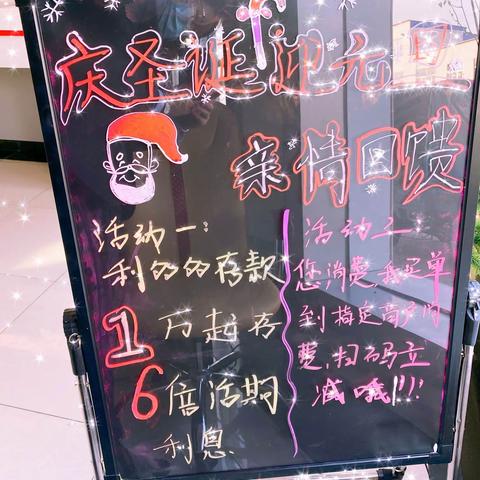 庆圣诞迎元旦
亲情回馈
活动一:
利的的存款
1万起存
6倍活期
利息
活动二
您消费我买单
到指定商户消
费,扫码立
减哦!!!